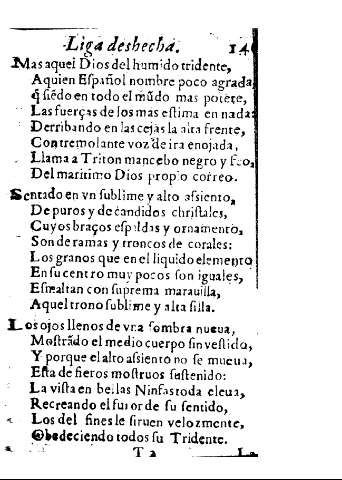 Liga deshecha. 14
Mas aquel Dios del humido tridente,
A quien Español nombre poco agrada,
q̃ siẽdo en todo el mũdo mas potẽte,
Las fuerças de los mas estima en nada:
Derribando en las cejas la alta frente,
Con tremolante voz de ira enojada,
Llama a Triton mancebo negro y feo,
Del maritimo Dios propio correo.
Sentado en vn sublime y alto assiento,
De puros y de candidos christales,
Cuyos braços espaldas y ornamento,
Son de ramas y troncos de corales:
Los granos que en el liquido elemento
En su centro muy pocos son iguales,
Esmaltan con suprema marauilla,
Aquel trono sublime y alta silla.
Los ojos llenos de vna sombra nueua,
Mostrãdo el medio cuerpo sin vestido,
Y porque el alto assiento no se mueua,
Esta de fieros mostruos sustenido:
La vista en bellas Ninfas toda eleua,
Recreando el furor de su sentido,
Los delfines le siruen velozmente,
Obedeciendo todos su Tridente.
T 2 La